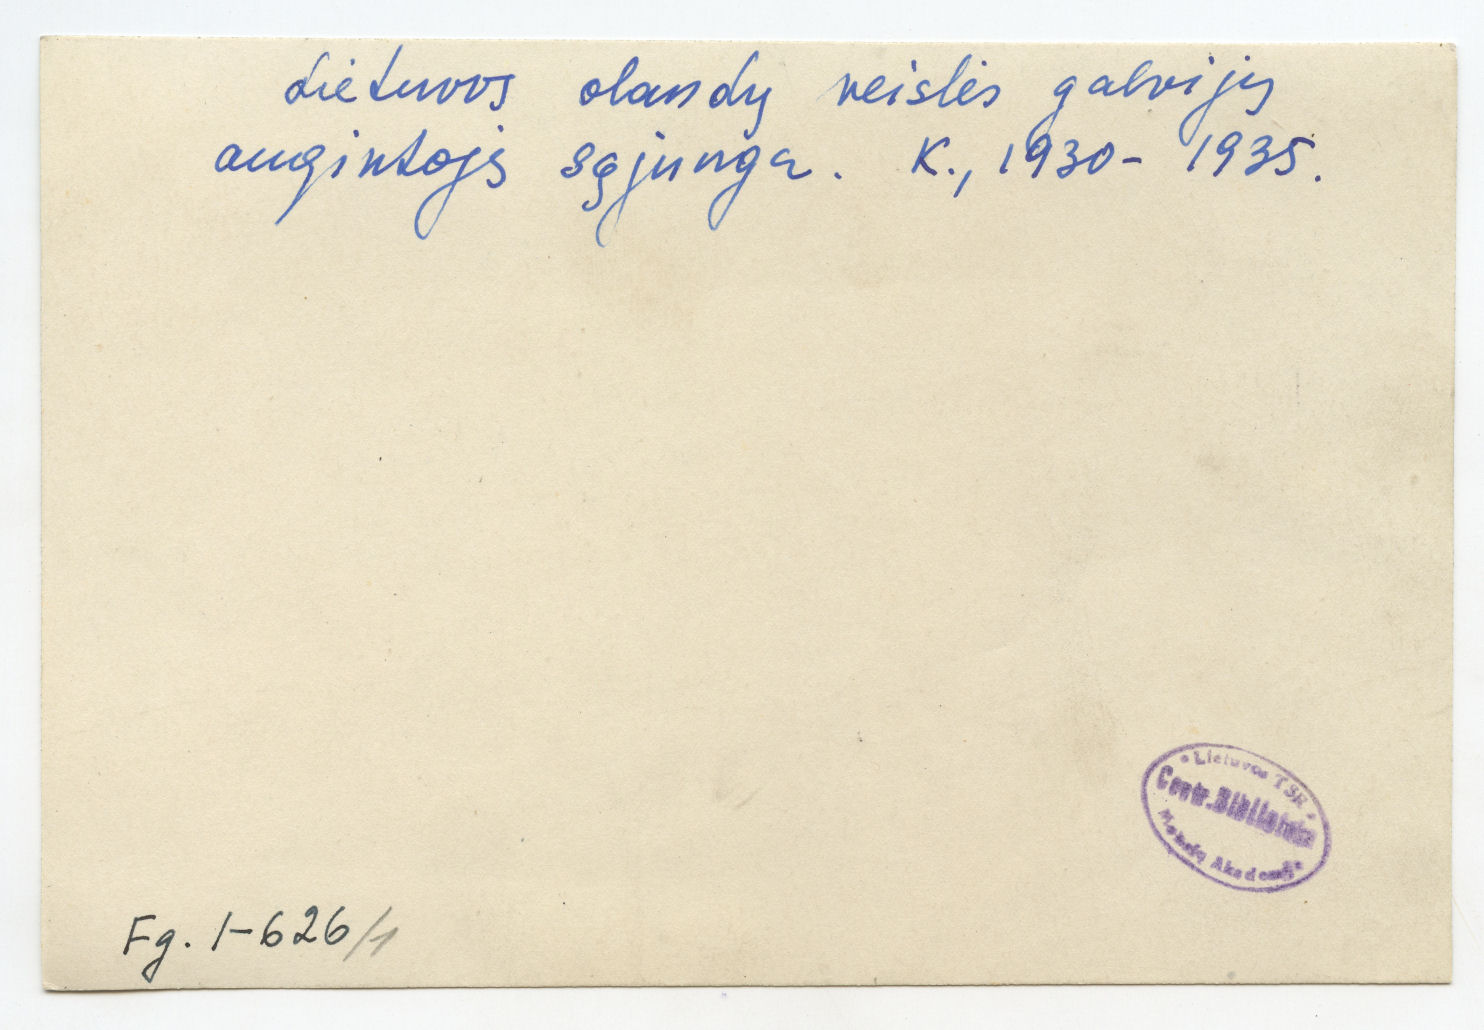 Lietuvos olandų veislės galvijų
augintojų sąjunga. K., 1930- 1935.
Lietuvos TSR
Centr. Biblioteka
Mokslų Akademij
Fg. 1-626/1